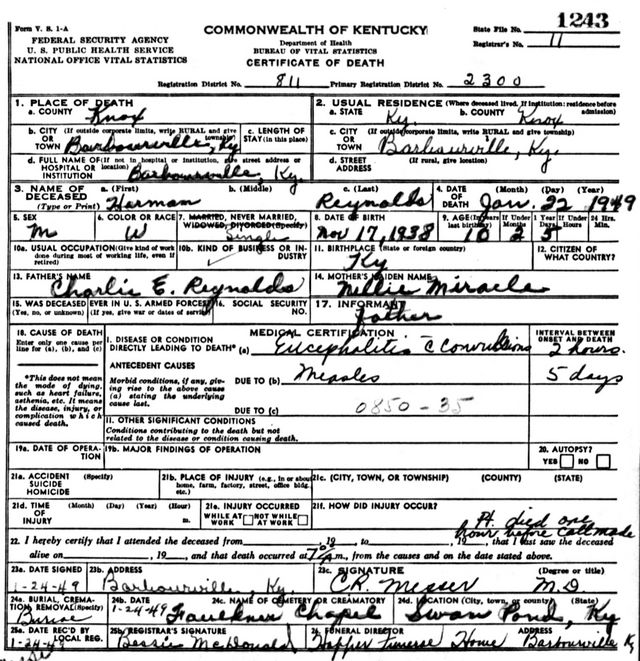 Form V. S. 1-A
COMMONWEALTH OF KENTUCKY
State File No. 1243
FEDERAL SECURITY AGENCY
Department of Health
Registrar's No. 11
U. S. PUBLIC HEALTH SERVICE
BUREAU OF VITAL STATISTICS
NATIONAL OFFICE VITAL STATISTICS
CERTIFICATE OF DEATH
Registration District No. 811 Primary Registration District No. 2300
1. PLACE OF DEATH
a. COUNTY Knox
2. USUAL RESIDENCE (Where deceased lived. If institution: residence before admission)
a. STATE Ky. b. COUNTY Knox
b. CITY (If outside corporate limits, write RURAL and give township) OR TOWN Barbourville, Ky
c. LENGTH OF STAY (in this place)
c. CITY (If outside corporate limits, write RURAL and give township) OR TOWN Barbourville, Ky.
d. FULL NAME OF (If not in hospital or institution, give street address or location) HOSPITAL OR INSTITUTION Barbourville, Ky.
d. STREET ADDRESS (If rural, give location)
3. NAME OF DECEASED (Type or Print) a. (First) Harman b. (Middle) c. (Last) Reynolds
4. DATE OF DEATH (Month) (Day) (Year) Jan. 22 1949
5. SEX M
6. COLOR OR RACE W
7. MARRIED, NEVER MARRIED, WIDOWED, DIVORCED (Specify) Single
8. DATE OF BIRTH Nov 17, 1938
9. AGE (In years last birthday) 10 If Under 1 Year Months 2 Days 5 If Under 24 Hrs. Hours Min.
10a. USUAL OCCUPATION (Give kind of work done during most of working life, even if retired)
10b. KIND OF BUSINESS OR INDUSTRY
11. BIRTHPLACE (State or foreign country) Ky
12. CITIZEN OF WHAT COUNTRY?
13. FATHER'S NAME Charlie E. Reynolds
14. MOTHER'S MAIDEN NAME Nellie Miracle
15. WAS DECEASED EVER IN U. S. ARMED FORCES? (Yes, no, or unknown) (If yes, give war or dates of service)
16. SOCIAL SECURITY NO.
17. INFORMANT Father
18. CAUSE OF DEATH
Enter only one cause per line for (a), (b), and (c)
MEDICAL CERTIFICATION
INTERVAL BETWEEN ONSET AND DEATH
I. DISEASE OR CONDITION DIRECTLY LEADING TO DEATH* (a) Encephalitis c̄ Convulsions 2 hours.
*This does not mean the mode of dying, such as heart failure, asthenia, etc. It means the disease, injury, or complication which caused death.
ANTECEDENT CAUSES
Morbid conditions, if any, giving rise to the above cause (a) stating the underlying cause last.
DUE TO (b) Measles 5 days
DUE TO (c) 0850-35
II. OTHER SIGNIFICANT CONDITIONS
Conditions contributing to the death but not related to the disease or condition causing death.
19a. DATE OF OPERATION
19b. MAJOR FINDINGS OF OPERATION
20. AUTOPSY? YES NO
21a. ACCIDENT SUICIDE HOMICIDE (Specify)
21b. PLACE OF INJURY (e.g., in or about home, farm, factory, street, office bldg. etc.)
21c. (CITY, TOWN, OR TOWNSHIP) (COUNTY) (STATE)
21d. TIME OF INJURY (Month) (Day) (Year) (Hour) m.
21e. INJURY OCCURRED WHILE AT WORK NOT WHILE AT WORK
21f. HOW DID INJURY OCCUR?
Pt. died one hour before call made
22. I hereby certify that I attended the deceased from , 19 to , 19 , that I last saw the deceased
alive on , 19 , and that death occurred at m., from the causes and on the date stated above.
23a. DATE SIGNED 1-24-49
23b. ADDRESS Barbourville, Ky.
23c. SIGNATURE (Degree or title) CR Messer M.D
24a. BURIAL, CREMATION, REMOVAL (Specify) Burial
24b. DATE 1-24-49
24c. NAME OF CEMETERY OR CREAMATORY Faulkner Chapel
24d. LOCATION (City, town, or county) (State) Swan Pond, Ky
25a. DATE REC'D BY LOCAL REG. 1-24-49
25b. REGISTRAR'S SIGNATURE Bessie McDonald
26. FUNERAL DIRECTOR ADDRESS Hopper Funeral Home Barbourville K